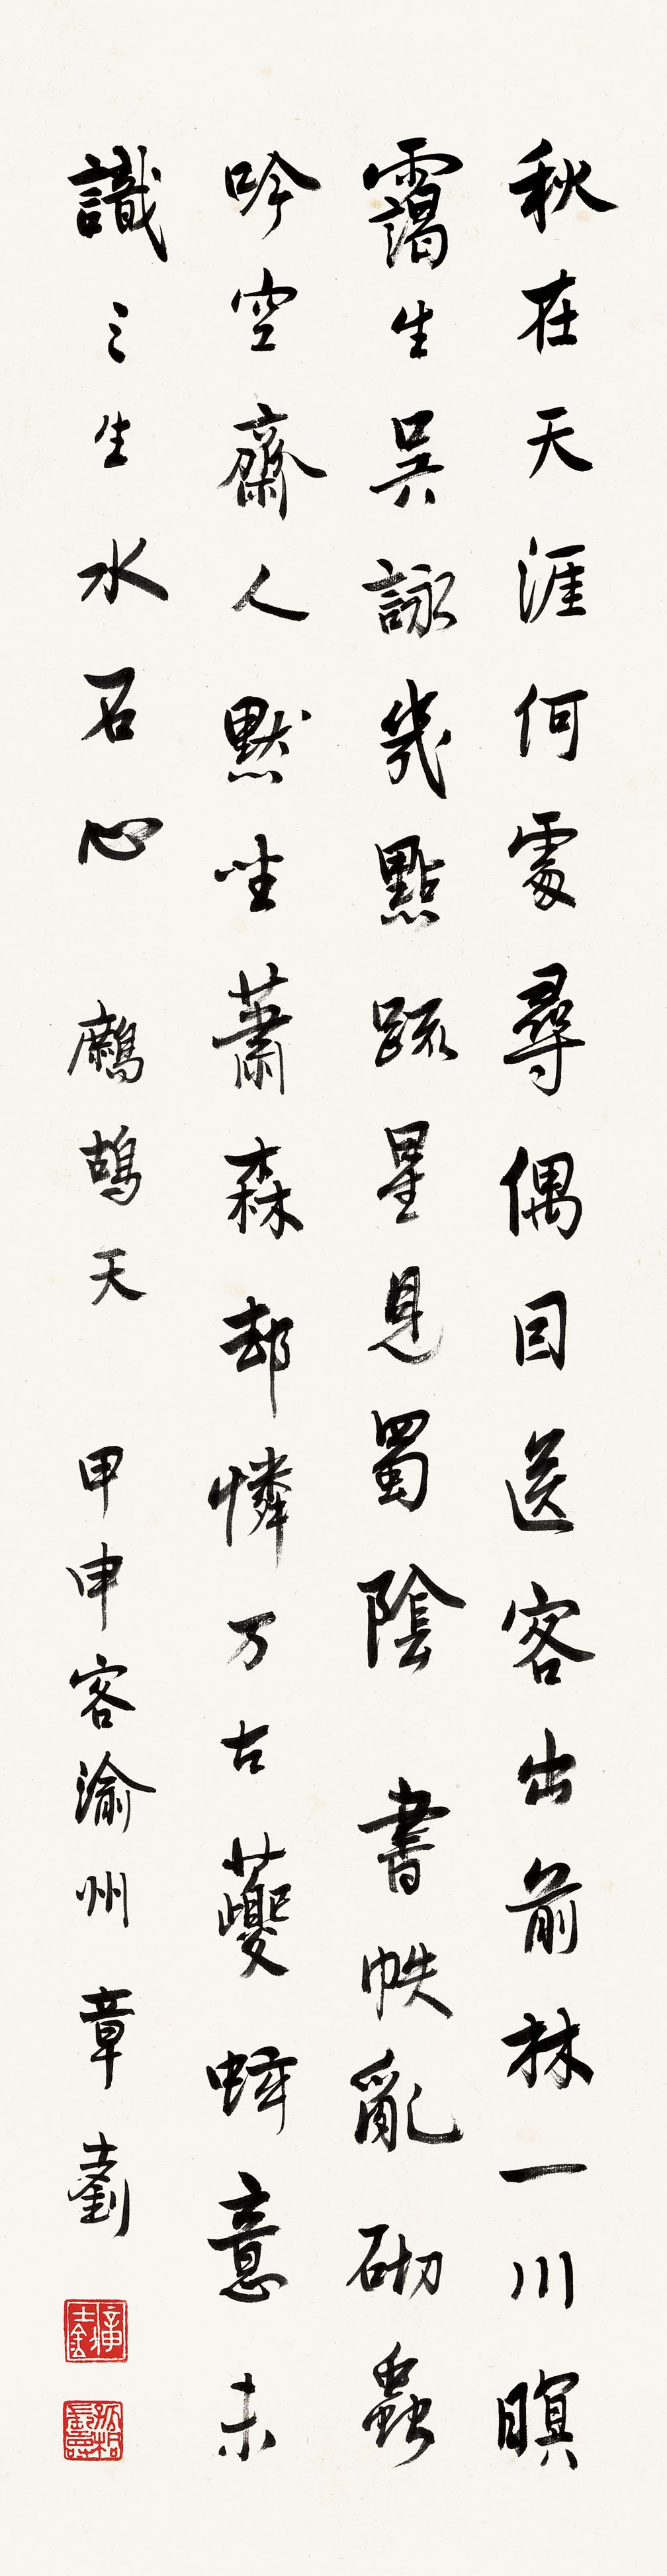 秋在天涯何處尋偶因送客出前林一川暝
靄生吳詠幾點疏星見蜀陰 書帙亂砌蟲
吟空齋人默坐蕭森却憐万古夔蚿意未
識三生水石心 鷓鴣天 甲申客渝州 章士釗
章士釗